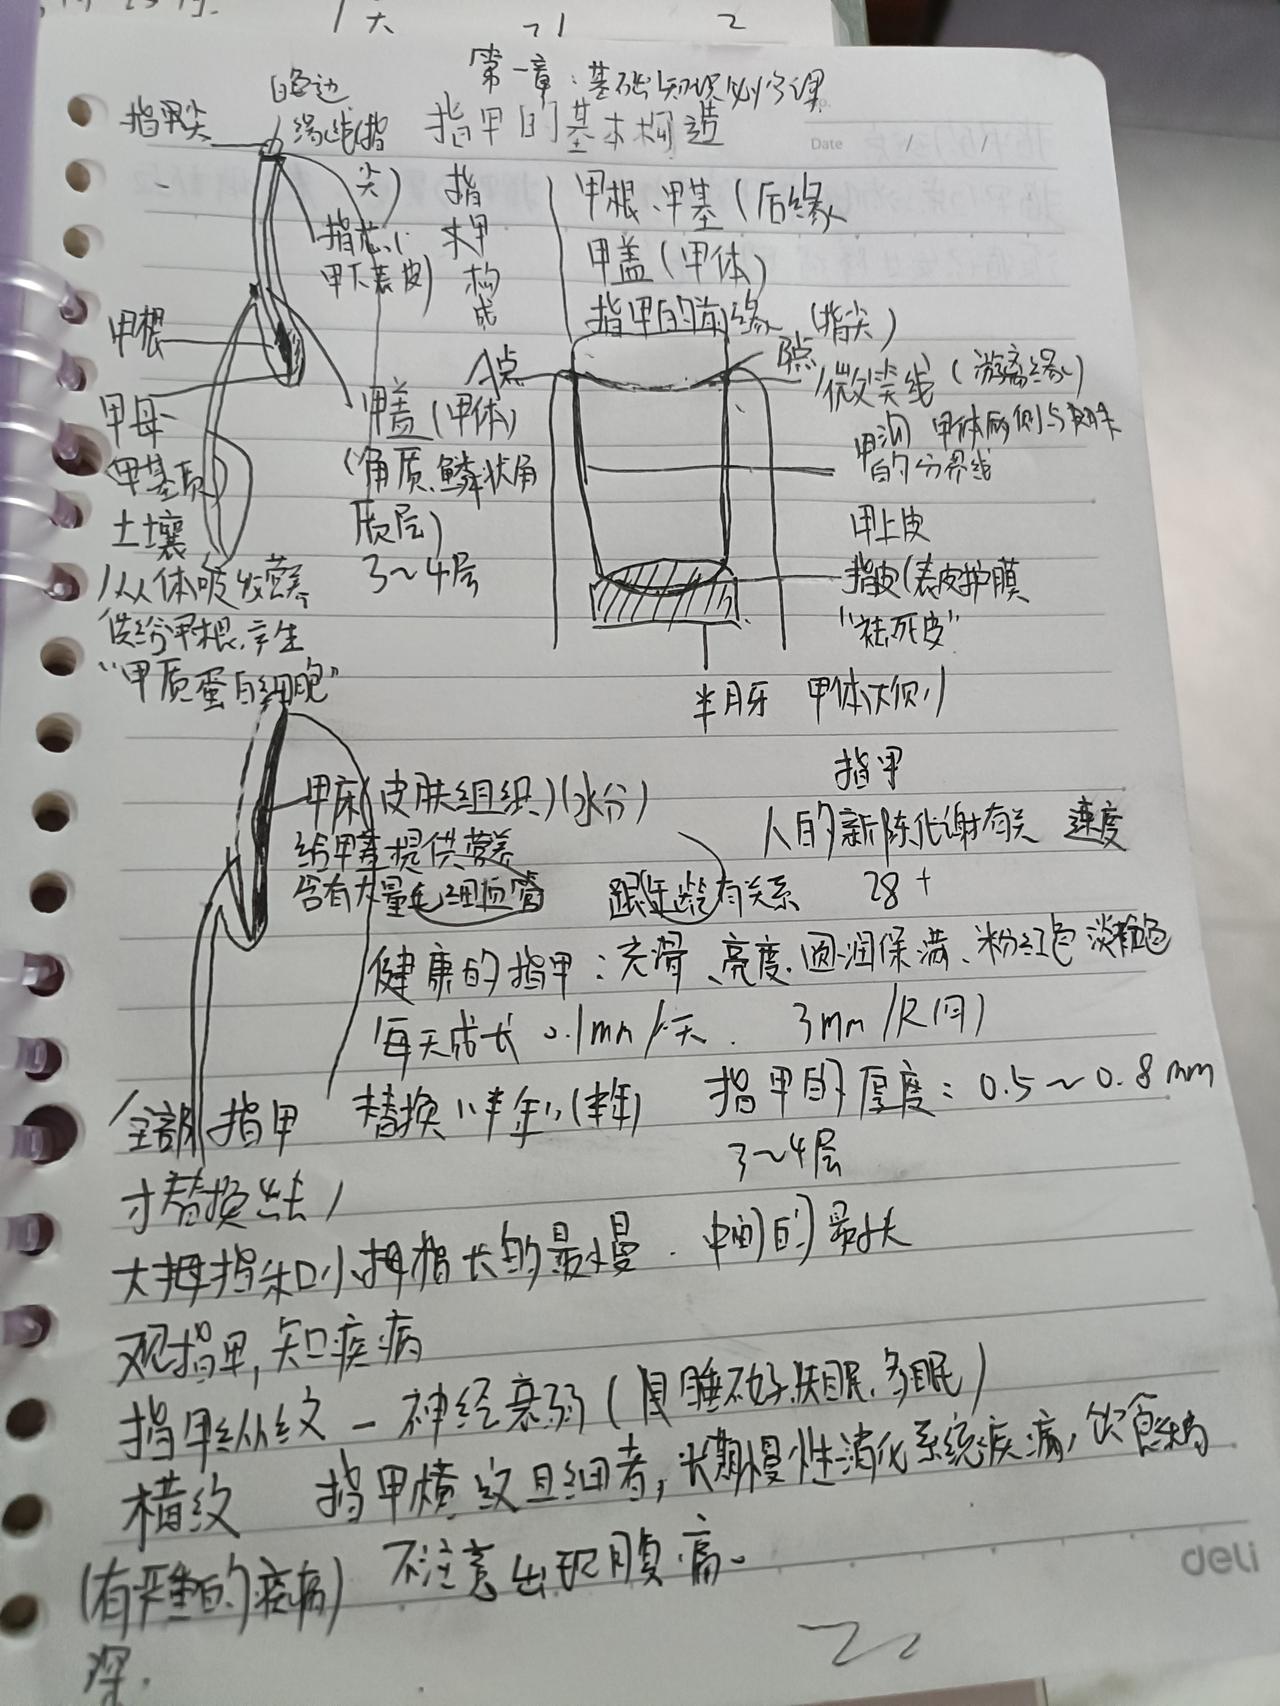 1天
21
2
第一章：基础知识必修课
指甲的基本构造
Date
指甲尖
白色边
缘线(指
尖)
指芯(
甲下表皮)
指
甲
构
成
甲根、甲基(后缘
甲盖(甲体)
指甲的前缘(指尖)
甲根
A点
B点
微笑线(游离缘)
甲母
甲基质
土壤
从人体吸收营养
供给甲根，产生
“甲质蛋白细胞”
甲盖(甲体)
(角质、鳞状角
质层)
3～4层
甲沟 甲体两侧与皮肤
的分界线
甲上皮
指皮(表皮护膜
“祛死皮”
半月牙 甲体
甲床(皮肤组织)(水分)
给甲盖提供营养
含有大量毛细血管
指甲
人的新陈代谢有关 速度
跟年龄有关系 28+
健康的指甲：光滑、亮度、圆润保满、粉红色 淡粉色
每天成长0.1mm/天. 3mm/R(月)
全部指甲 替换“半年”(半年)
指甲的厚度：0.5～0.8mm
3～4层
才替换出去
大拇指和小拇指长的最慢. 中间的最长
观指甲，知疾病
指甲纵纹－神经衰弱(睡不好、失眠、多眠)
横纹 指甲横纹且细者，长期慢性消化系统疾病，饮食稍
(有严重的疾病) 不注意出现腹痛。
深.
deli